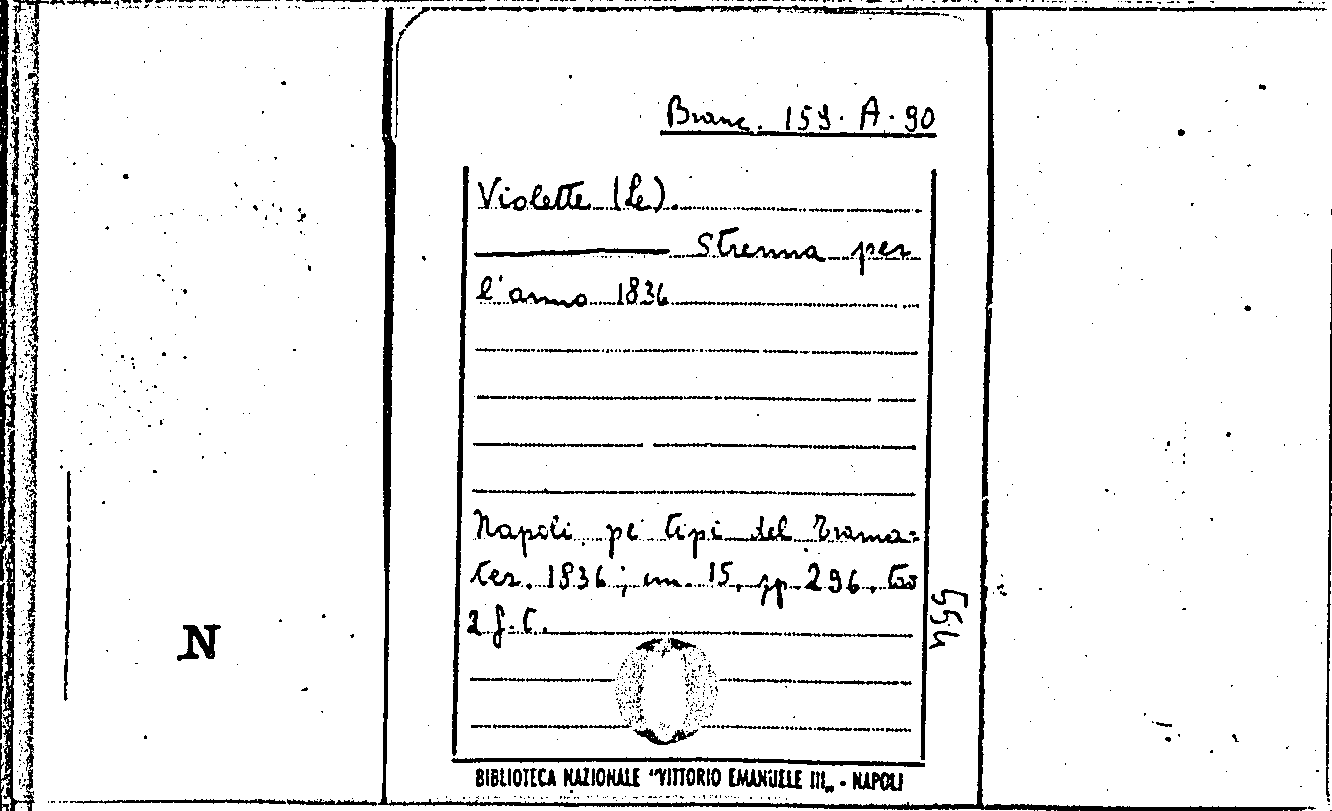 Branc. 159. A. 90
Violette (Le).
Strenna per
l'anno 1836
Napoli, pe' tipi del Trama=
ter. 1836; cm. 15, pp 296. tav
2 f. t.
554
N
BIBLIOTECA NAZIONALE "VITTORIO EMANUELE III„ - NAPOLI